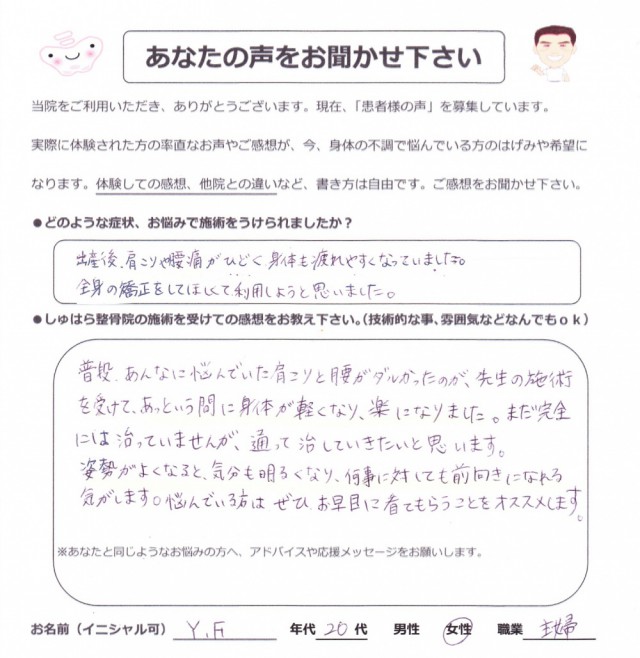 あなたの声をお聞かせ下さい
当院をご利用いただき、ありがとうございます。現在、「患者様の声」を募集しています。
実際に体験された方の率直なお声やご感想が、今、身体の不調で悩んでいる方のはげみや希望に
なります。体験しての感想、他院との違いなど、書き方は自由です。ご感想をお聞かせ下さい。
●どのような症状、お悩みで施術をうけられましたか？
出産後、肩こりや腰痛がひどく身体も疲れやすくなっていました。
全身の矯正をしてほしくて利用しようと思いました。
●しゅはら整骨院の施術を受けての感想をお教え下さい。（技術的な事、雰囲気などなんでもｏｋ）
普段、あんなに悩んでいた肩こりと腰がダルかったのが、先生の施術
を受けて、あっという間に身体が軽くなり、楽になりました。まだ完全
には治っていませんが、通って治していきたいと思います。
姿勢がよくなると、気分も明るくなり、何事に対しても前向きになれる
気がします。悩んでいる方は ぜひ お早目に看てもらうことをオススメします。
※あなたと同じようなお悩みの方へ、アドバイスや応援メッセージをお願いします。
お名前（イニシャル可） Y.F 年代 20 代 男性 女性 職業 主婦